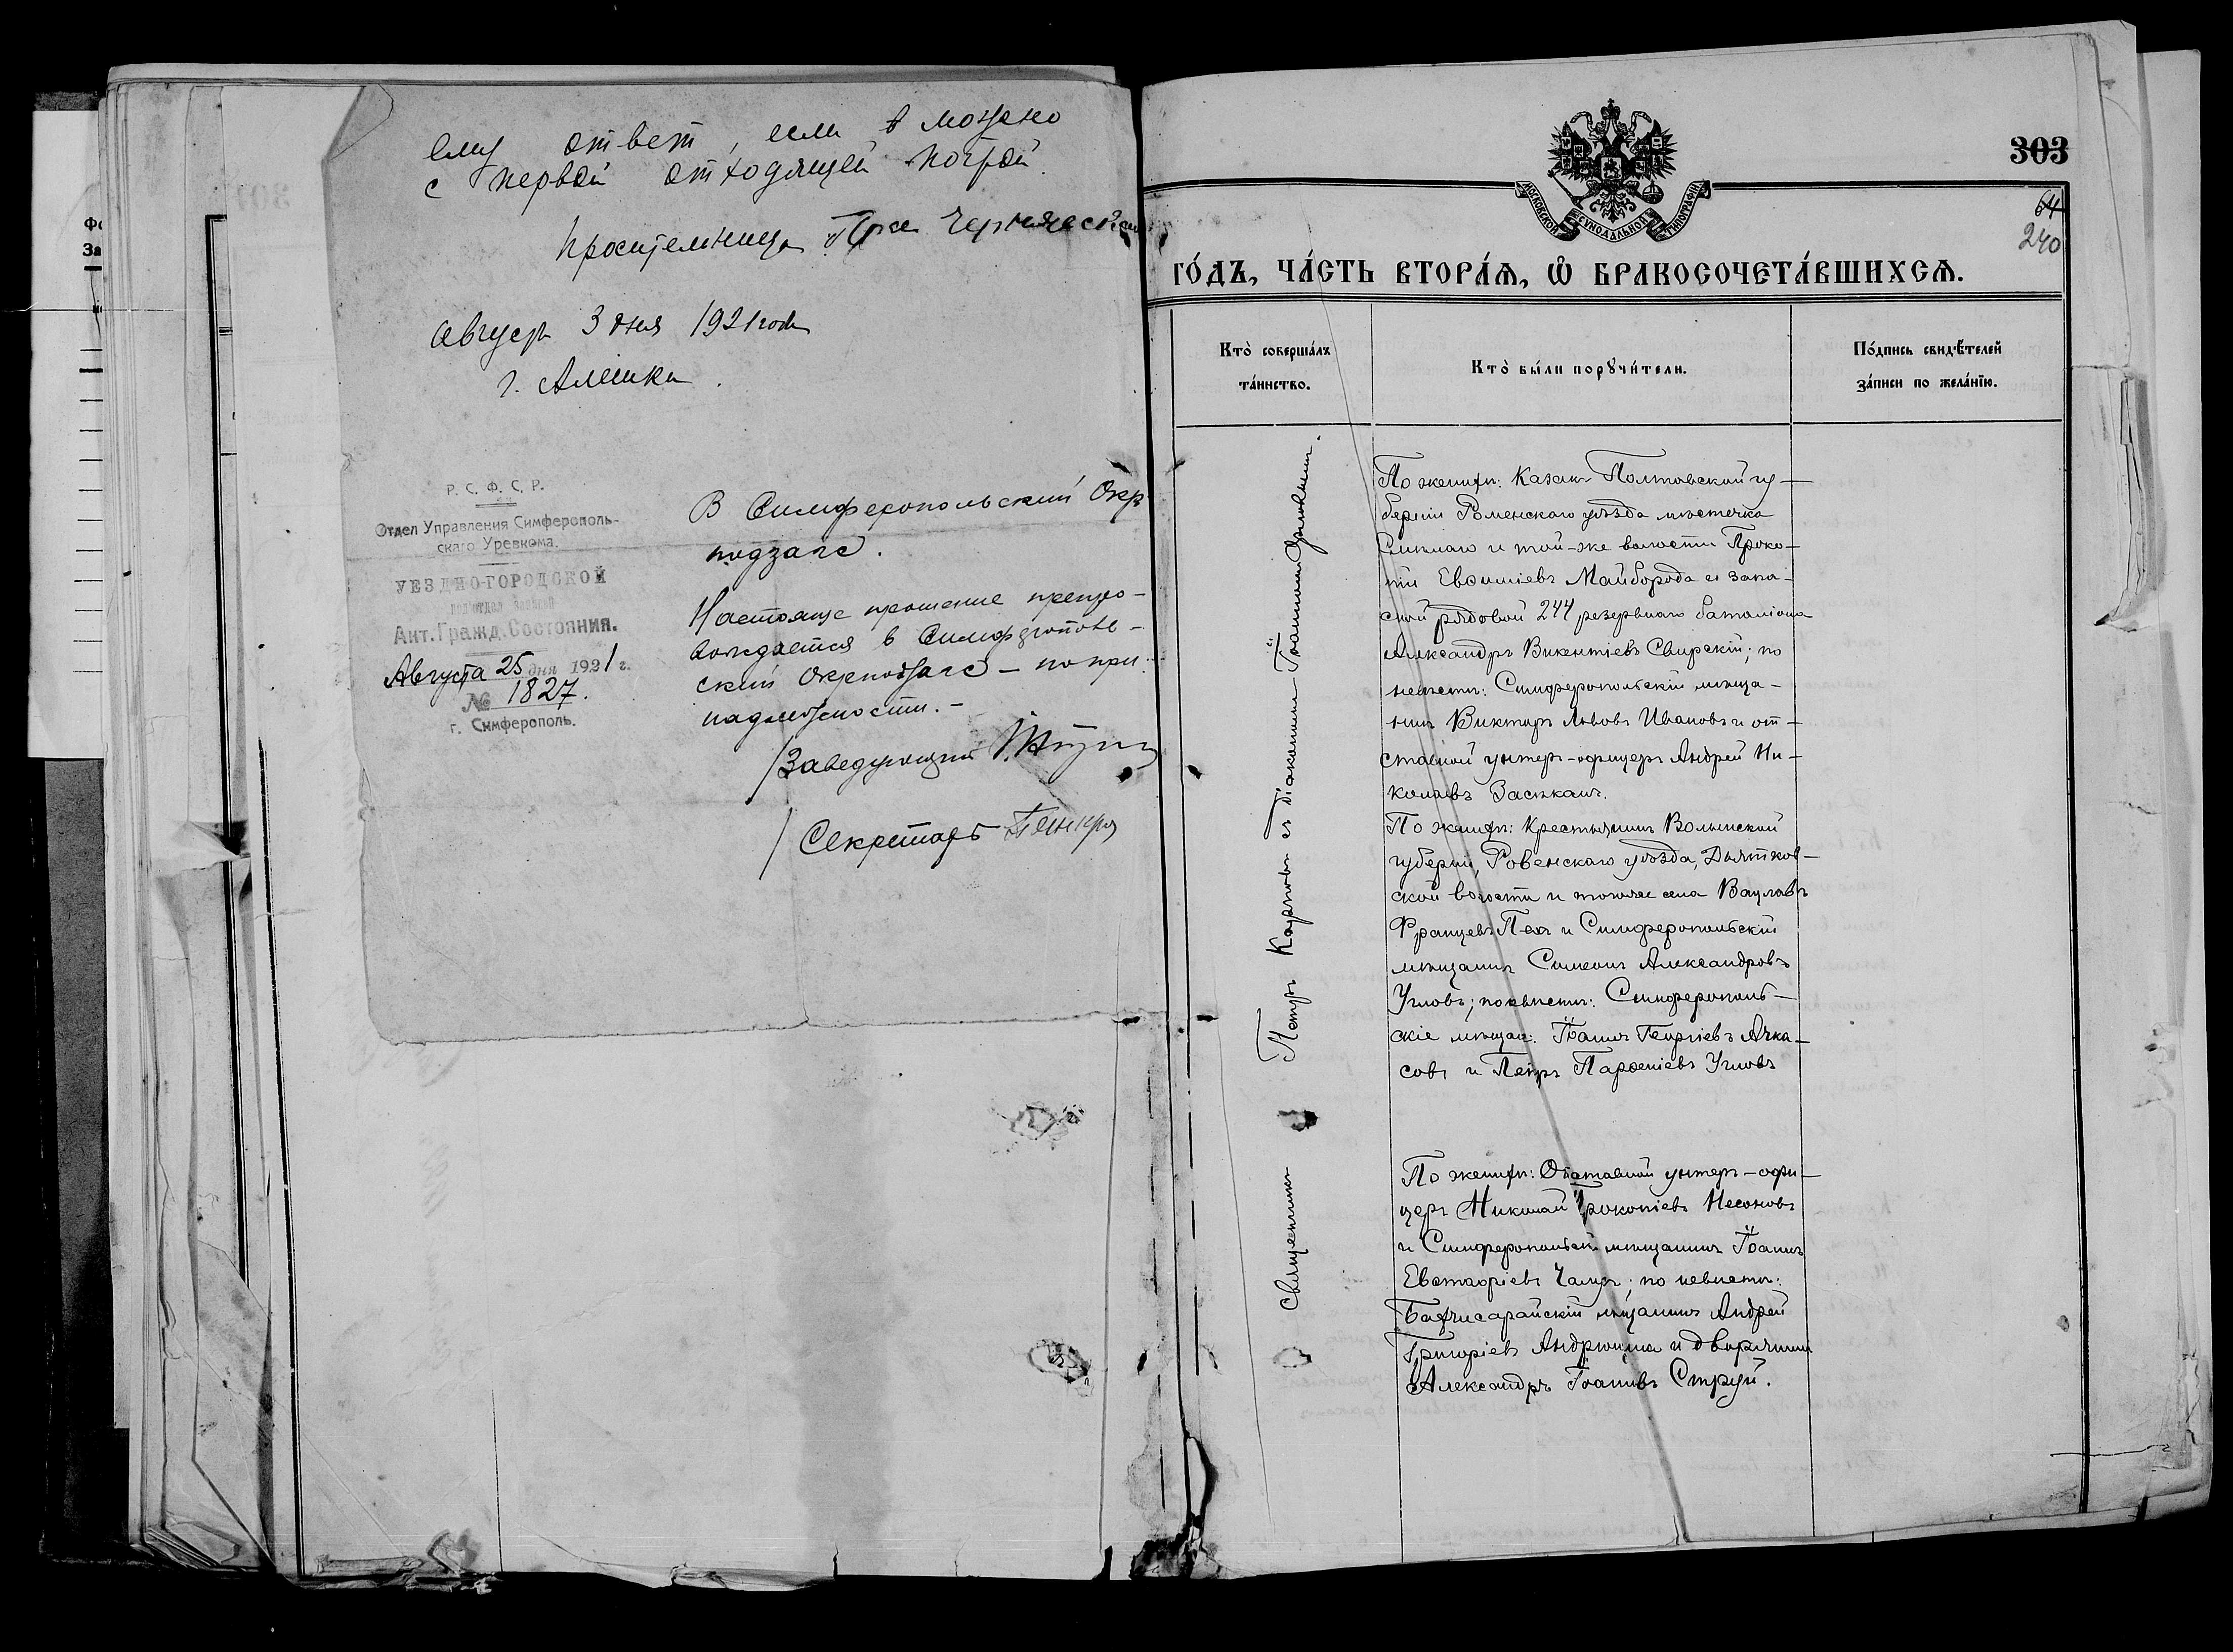 ему ответ, если в можно
с первой отходящей почтой.
Просительница
Август 3 дня 1921 года
г. Алешки.
Р. С. Ф. С. Р.
Отдел Управления Симферополь-
скаго Уревкома.
УЕЗДНО-ГОРОДСКОЙ
подотдел записей
Акт. Гражд. Состояния.
Августа 25 дня 1921 г.
№ 1827.
г. Симферополь.
В Симферопольский Окр.
подзагс.
Настояще прошение препро-
вождается в Симферополь-
ский Окрподзагс – по при-
надлежности. –
Заведующий
Секретарь
303
МОСКОВСКОЙ СѴНОДАЛЬНОЙ ТИПОГРАФІИ
64
240
ГО́ДЪ, ЧА́СТЬ ВТОРА́Я, Ѡ БРАКОСОЧЕТА́ВШИХСЯ.
Кто̀ совершáлъ
тáинство.
Кто̀ бы́ли порꙋчи́тели.
По́дпись свидѣ́телей
зáписи по желáнїю.
Священникъ Петръ Карповъ съ Діакономъ Іоанномъ
По женихѣ: Казакъ Полтовской гу-
берніи Роменскаго уѣзда мѣстечка
Смѣлаго и той-же волости Проко-
пій Евѳиміевъ Майборода и запа-
сной рядовой 244 резервнаго баталіона
Александръ Викентіевъ Свирскій; по
невѣстѣ: Симферопольскій мѣща-
нинъ Викторъ Львовъ Ивановъ и от-
ставной унтеръ-офицеръ Андрей Ни-
колаевъ Засѣкань.
По женихѣ: Крестьянинъ Волынской
губерніи, Ровенскаго уѣзда, Дятков-
ской волости и того же села Вацлавъ
Францевъ Пехъ и Симферопольскій
мѣщанинъ Симеонъ Александровъ
Угловъ; по невѣстѣ: Симферополь-
скіе мѣщан: Іоаннъ Георгіевъ Ачка-
совъ и Петръ Парѳеніевъ Угловъ
По женихѣ: Отставной унтеръ-офи-
церъ Николай Прокопіевъ Несоновъ
и Симферопольскій мѣщанинъ Іоаннъ
Евстафіевъ; по невѣстѣ:
Бахчисарайскій мѣщанинъ Андрей
Григоріевъ Андрющка и дворянинъ
Александръ Іоанновъ Струй.